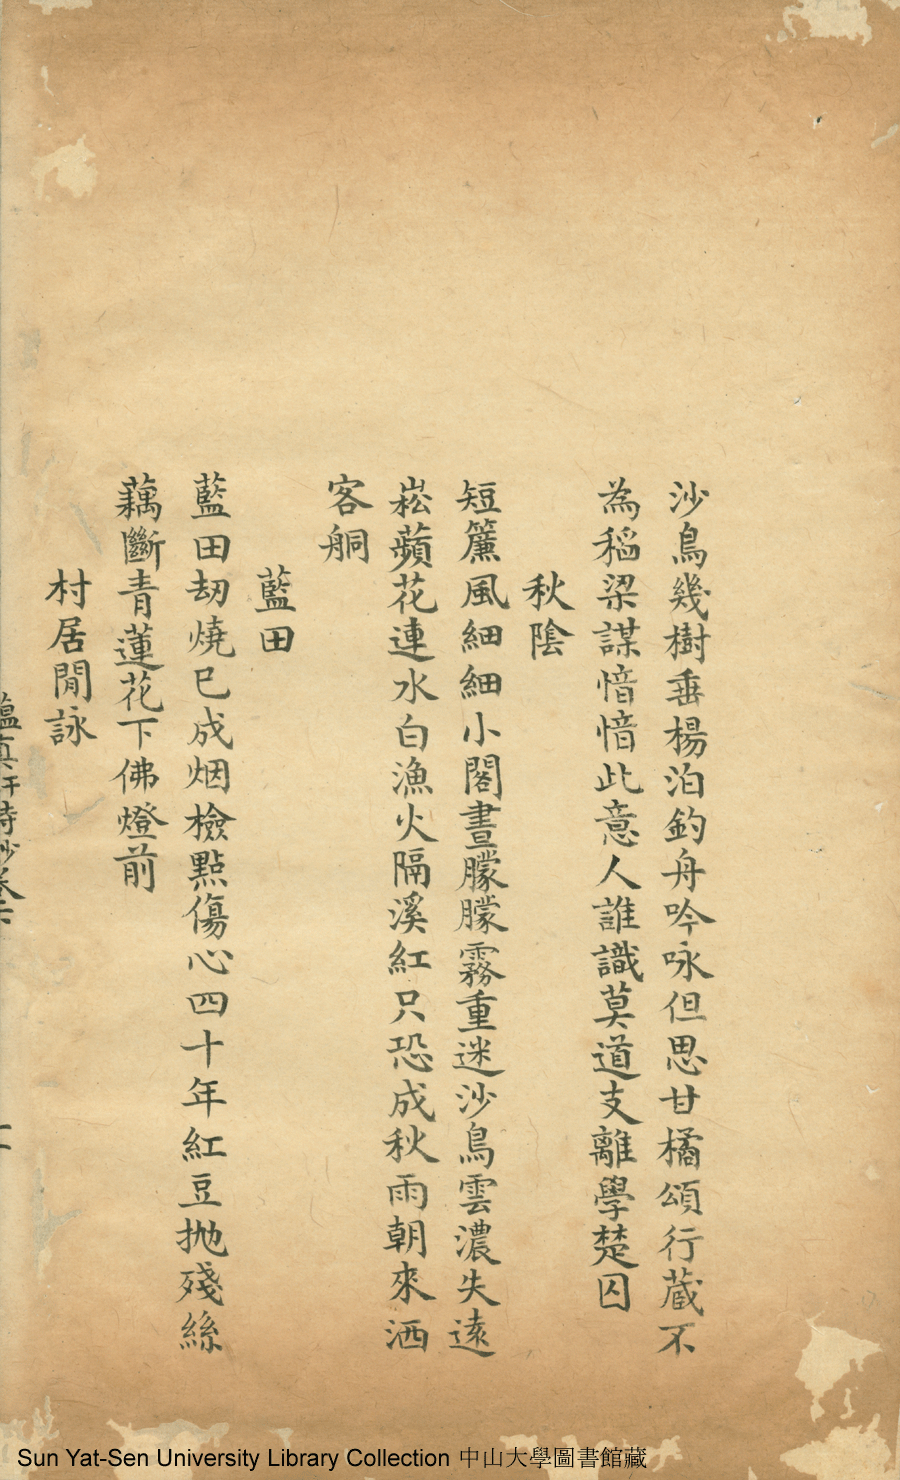 沙鳥幾樹垂楊泊釣舟吟咏但思甘橘頌行蔵不
為稻梁謀愔愔此意人誰識莫道支離學楚囚
秋陰
短簾風細細小閣晝朦朦霧重迷沙鳥雲濃失遠
崧蘋花連水白漁火隔溪紅只恐成秋雨朝來洒
客艄
藍田
藍田刼燒已成烟檢點傷心四十年紅豆拋殘絲
藕斷青蓮花下佛燈前
村居閒詠
Sun Yat-Sen University Library Collection 中山大學圖書館藏